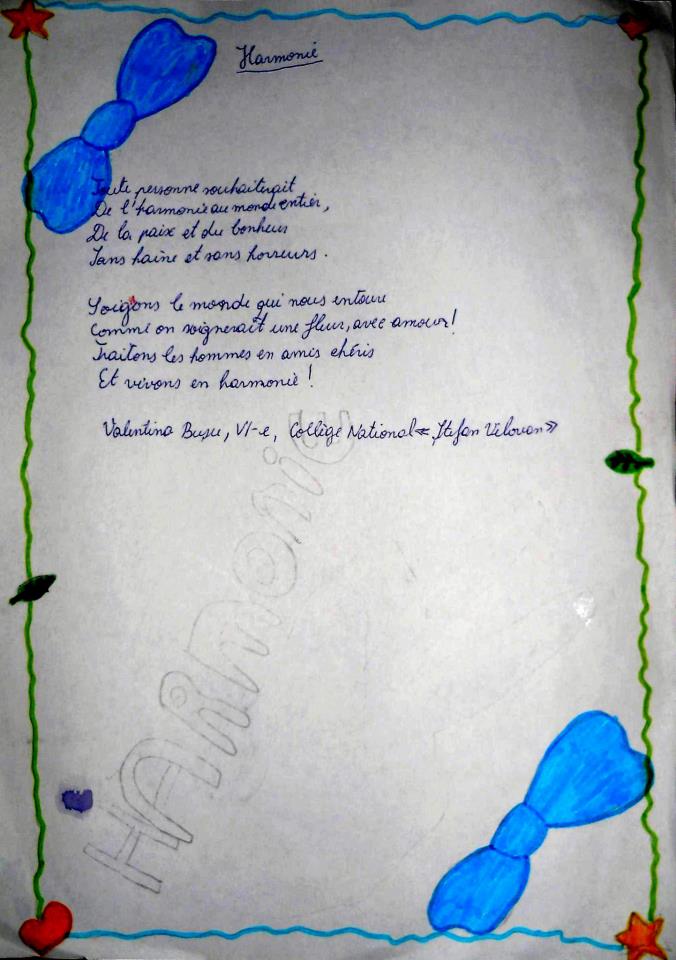 Harmonie
Toute personne souhaiterait
De l'harmonie au monde entier,
De la paix et du bonheur
Sans haine et sans horreurs.
Soigons le monde qui nous entoure
Comme on soignerait une fleur, avec amour!
Traitons les hommes en amis chéris
Et vivons en harmonie!
Valentina Busu, VI-e, Collège National « Ștefan Velovan »
HARMONIE